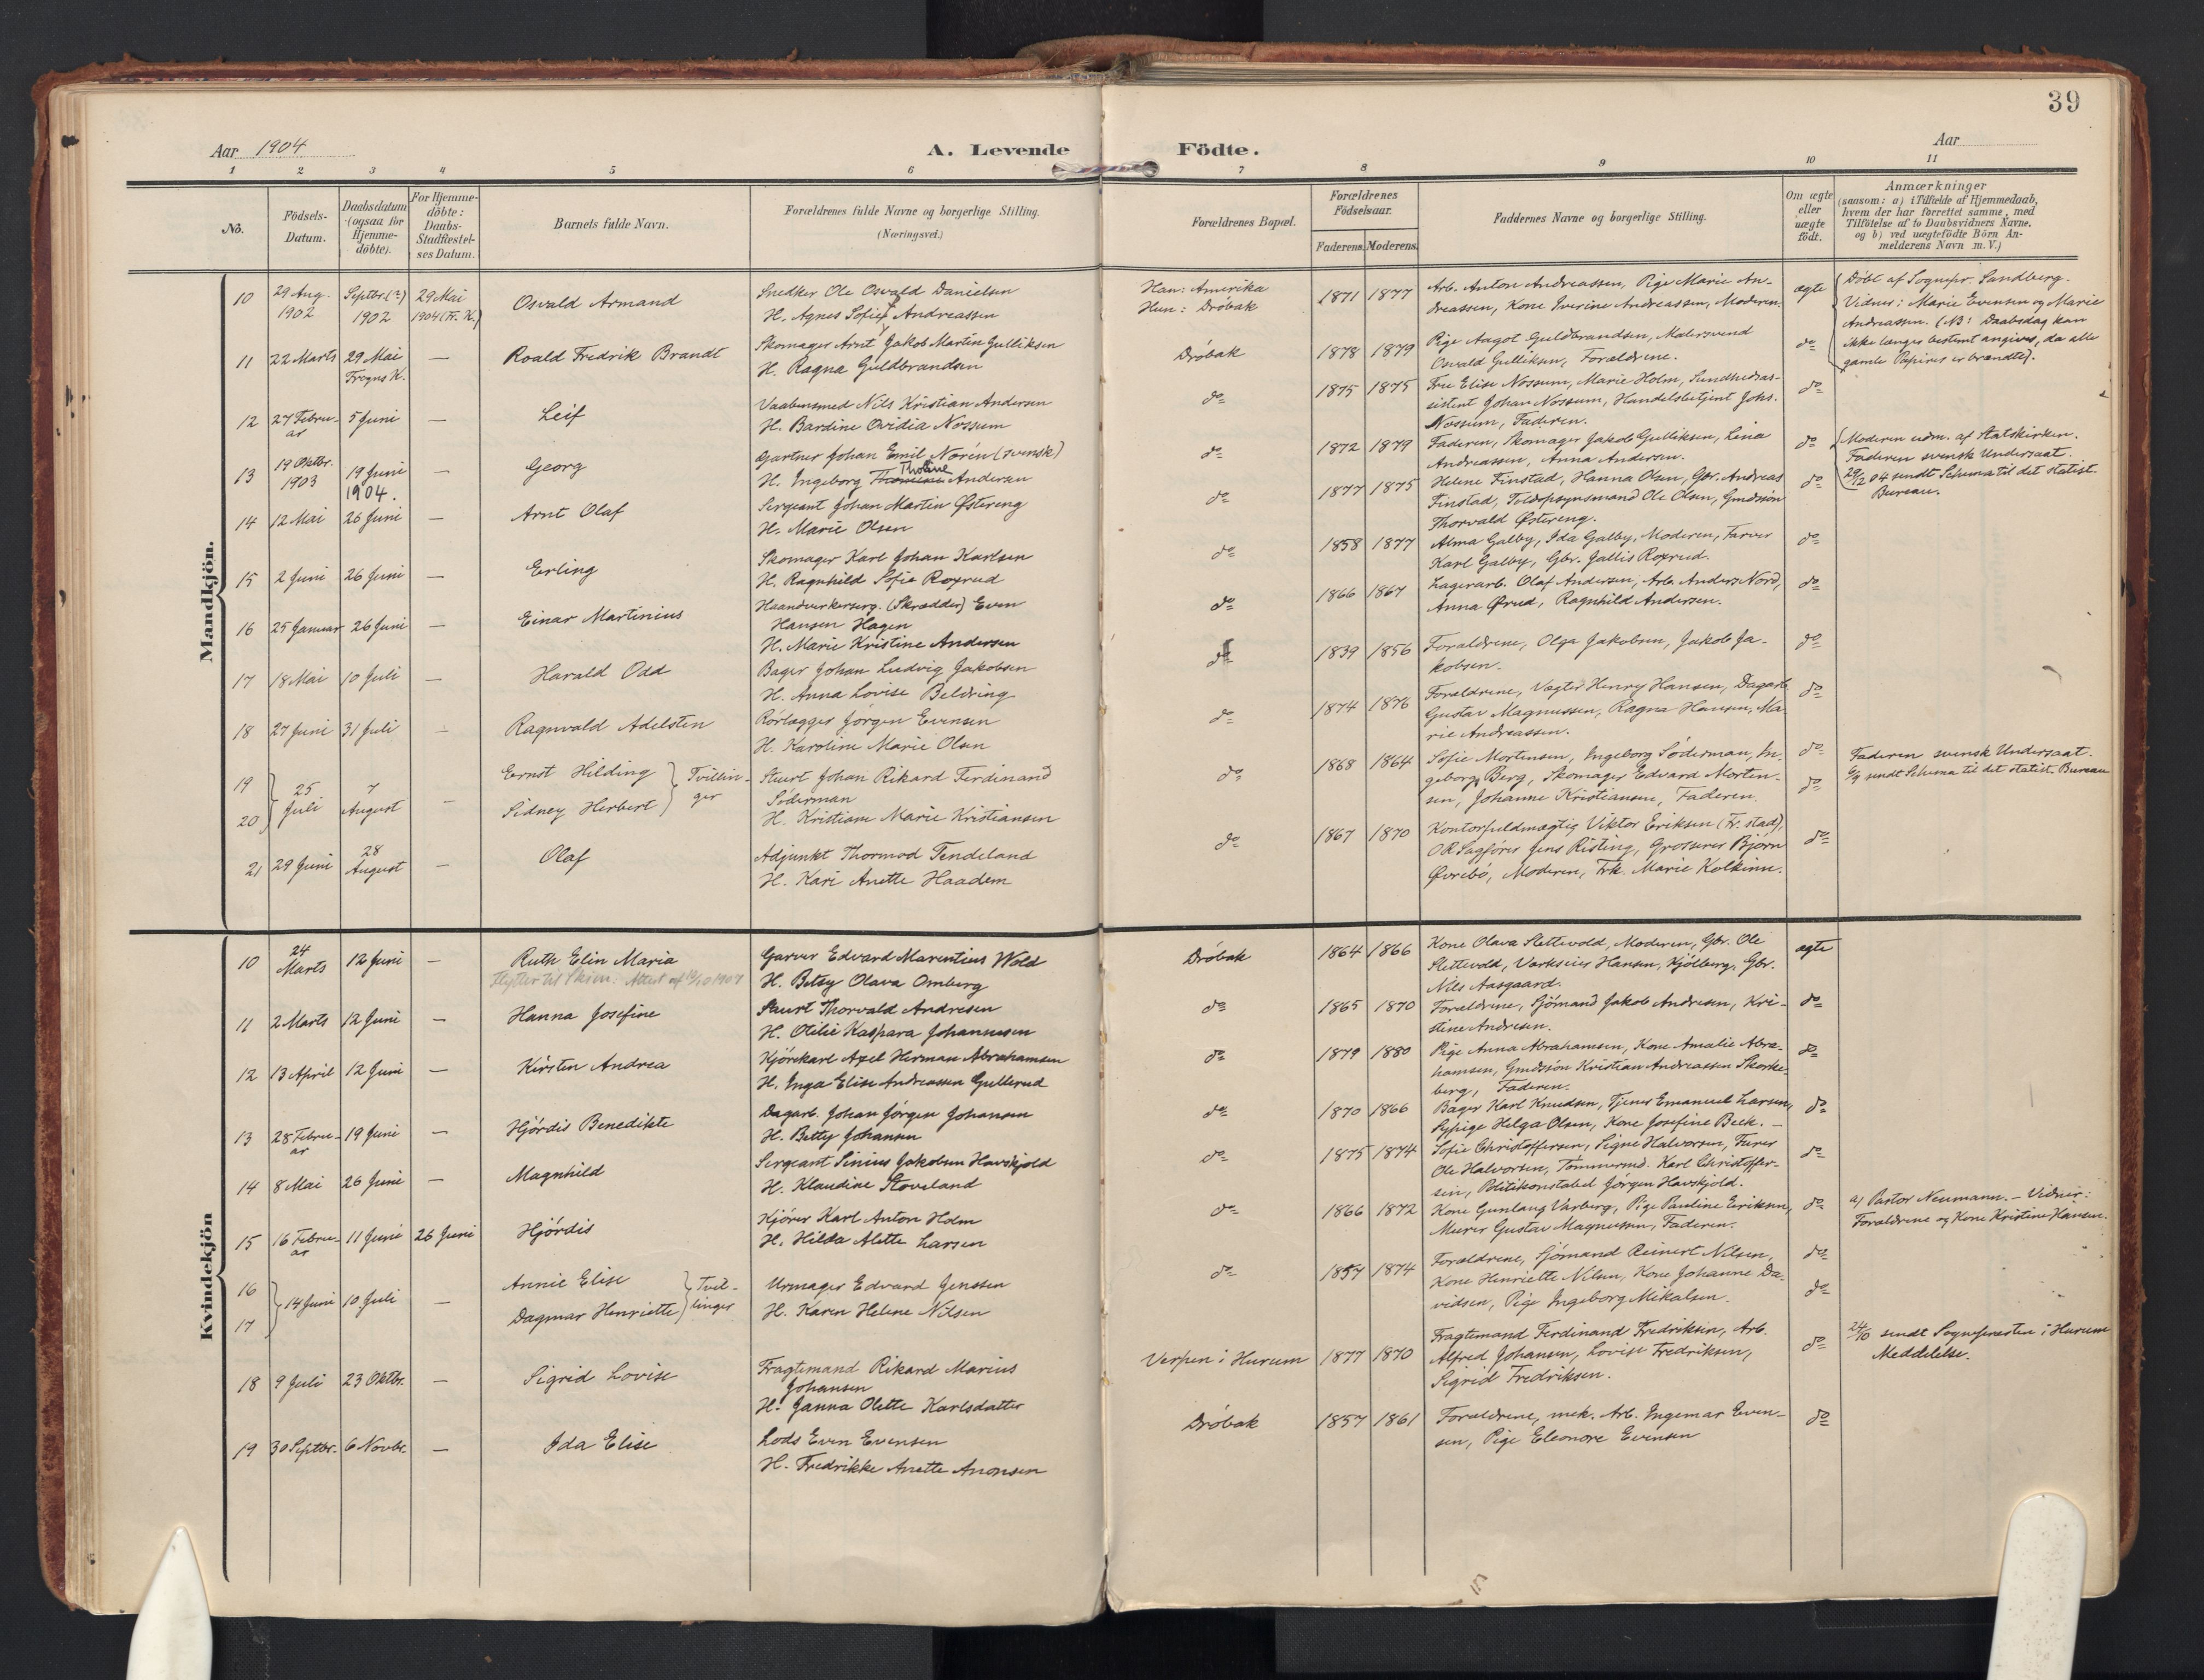 39
Aar 1904
A. Levende Födte.
Aar
1 2 3 4 5 6 7 8 9 10 11
No.
Födsels-
Datum.
Daabsdatum
(ogsaa for
Hjemme-
döbte).
For Hjemme-
döbte:
Daabs-
Stadfæstel-
ses Datum.
Barnets fulde Navn.
Forældrenes fulde Navne og borgerlige Stilling.
(Næringsvei.)
Forældrenes Bopæl.
Forældrenes
Födselsaar.
Faderens. Moderens.
Faddernes Navne og borgerlige Stilling.
Om ægte
eller
uægte
födt.
Anmærkninger
(saasom: a) i Tilfælde af Hjemmedaab,
hvem der har forrettet samme, med
Tilföielse af to Daabsvidners Navne.
og b) ved uægtefödte Börn An-
melderens Navn m. V.)
Mandkjön.
10 29 Aug. 1902 Septbr. (?) 1902 29 Mai 1904 (Fr. K.) Osvald Armand
Snedker Ole Osvald Danielsen
H. Agnes Sofie Andreassen
Han: Amerika
Hun: Dröbak
1871 1877
Arb. Anton Andreassen, Pige Marie An-
dreassen, Kone Iverine Andreassen, Moderen.
ægte
Döbt af Sognepr. Sandberg.
Vidner: Marie Evensen og Marie
Andreassen. (NB: Daabsdag kan
ikke længer bestemt angives, da alle
gamle Papirer er brændte).
11 22 Marts 29 Mai Frogns K. — Roald Fredrik Brandt
Skomager Arnt Jakob Martin Gulliksen
H. Ragna Guldbrandsen
Dröbak 1878 1879
Pige Aagot Guldbrandsen, Malersvend
Osvald Gulliksen, Forældrene.
do
12 27 Februar 5 Juni — Leif
Vaabensmed Nils Kristian Andersen
H. Bardine Ovidia Nossum
do 1875 1875
Fru Elise Nossum, Marie Holm, Sundhedsas-
sistent Johan Nossum, Handelsbetjent Johs.
Nossum, Faderen.
do
13 19 Oktbr. 1903 19 Juni 1904. — Georg
Gartner Johan Emil Norén (svensk)
H. Ingeborg Tholine Andersen
do 1872 1879
Faderen, Skomager Jakob Gulliksen, Lina
Andreassen, Anna Andersen.
do
Moderen udm. af Statskirken.
Faderen svensk Undersaat.
29/12 04 sendt Schema til det statist.
Bureau.
14 12 Mai 26 Juni — Arnt Olaf
Sergeant Johan Martin Østereng
H. Marie Olsen
do 1877 1875
Helene Finstad, Hanna Olsen, Gbr. Andreas
Finstad, Toldopsynsmand Ole Olsen, Gmdssön
Thorvald Østereng.
do
15 2 Juni 26 Juni — Erling
Skomager Karl Johan Karlsen
H. Ragnhild Sofie Roxrud
do 1858 1877
Alma Galby, Ida Galby, Moderen, Farver
Karl Galby, Gbr. Jallis Roxrud.
do
16 25 Januar 26 Juni — Einar Martinius
Haandverkerserg. (Skrædder) Even
Hansen Hagen
H. Marie Kristine Andersen
do 1866 1867
Lagerarb. Olaf Andersen, Arb. Anders Nord,
Anna Ørud, Ragnhild Andersen.
do
17 18 Mai 10 Juli — Harald Odd
Bager Johan Ludvig Jakobsen
H. Anna Lovise Beldring
do 1839 1856
Forældrene, Olga Jakobsen, Jakob Ja-
kobsen.
do
18 27 Juni 31 Juli — Ragnvald Adelsten
Rörlægger Jörgen Evensen
H. Karoline Marie Olsen
do 1874 1876
Forældrene, Vægter Henry Hansen, Dagarb.
Gustav Magnussen, Ragna Hansen, Ma-
rie Andreassen.
do
19 20 25 Juli 7 August — Ernst Hilding
Sidney Herbert
Tvillin-
ger
Stuert Johan Rikard Ferdinand
Söderman
H. Kristiane Marie Kristiansen
do 1868 1864
Sofie Mortensen, Ingeborg Söderman, In-
geborg Berg, Skomager Edvard Morten-
sen, Johanne Kristiansen, Faderen.
do
do
Faderen svensk Undersaat.
6/9 sendt Schema til det statist. Bureau
21 29 Juni 28 August — Olaf
Adjunkt Thormod Tendeland
H. Kari Anette Haadem
do 1867 1870
Kontorfuldmægtig Viktor Eriksen (Fr.stad),
ORSagförer Jens Risting, Groserer Björn
Øvrebö, Moderen, Frk. Marie Kolkinn.
do
Kvindekjön
10 24 Marts 12 Juni — Ruth Elin Maria
Flytter til Skien. Attest af 12/10 1907
Garver Edvard Marentius Wold
H. Betsy Olava Omberg
Dröbak 1864 1866
Kone Olava Slettevold, Moderen, Gbr. Ole
Slettevold,Værkseier Hansen, Kjölberg, Gbr.
Nils Aasgaard.
ægte
11 2 Marts 12 Juni — Hanna Josefine
Stuert Thorvald Andresen
H. Otilie Kaspara Johannesen
do 1865 1870
Forældrene, Sjömand Jakob Andresen, Kri-
stine Andresen.
do
12 13 April 12 Juni — Kirsten Andrea
Kjörekarl Axel Herman Abrahamsen
H. Inga Elise Andreassen Gullerud
do 1879 1880
Pige Anna Abrahamsen, Kone Amalie Abra-
hamsen, Gmdssön Kristian Andreassen Skorke-
berg, Faderen.
do
13 28 Februar 19 Juni — Hjördis Benedikte
Dagarb. Johan Jörgen Johansen
H. Betty Johansen
do 1870 1866
Bager Karl Knudsen, Tjener Emanuel Larsen,
Sypige Helga Olsen, Kone Josefine Beck. —
do
14 8 Mai 26 Juni — Magnhild
Sergeant Sinius Jakobsen Havskjold
H. Klaudine Stoveland
do 1875 1874
Sofie Christoffersen, Signe Halvorsen, Furer
Ole Halvorsen, Tömmermd. Karl Christoffer-
sen, Politikonstabel Jörgen Havskjold.
do
15 16 Februar 11 Juni 26 Juni Hjördis
Kjörer Karl Anton Holm
H. Hilda Alette Larsen
do 1866 1872
Kone Gunlaug Varberg, Pige Pauline Eriksen,
Murer Gustav Magnussen, Faderen.
do
a) Pastor Neumann. — Vidner:
Forældrene og Kone Kristine Hansen.
16 17 14 Juni 10 Juli — Annie Elise
Dagmar Henriette
Tvil-
linger
Urmager Edvard Jenssen
H. Karen Helene Nilsen
do 1857 1874
Forældrene, Sjömand Reinert Nilsen,
Kone Henriette Nilsen, Kone Johanne Da-
vidsen, Pige Ingeborg Mikalsen.
do
do
18 9 Juli 23 Oktbr. — Sigrid Lovise
Fragtemand Rikard Marius
Johansen
H. Janna Olette Karlsdatter
Verpen i Hurum 1877 1870
Fragtemand Ferdinand Fredriksen, Arb.
Alfred Johansen, Lovise Fredriksen,
Sigrid Fredriksen.
do
24/10 sendt Sognepresten i Hurum
Meddelelse.
19 30 Septbr. 6 Novbr. — Ida Elise
Lods Even Evensen
H. Fredrikke Anette Anonsen
Dröbak 1857 1861
Forældrene, mek. Arb. Ingemar Even-
sen, Pige Eleonore Evensen
do